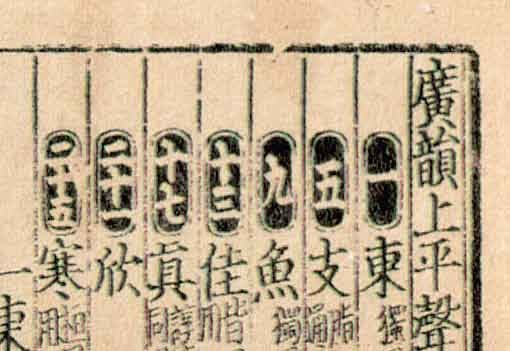 廣韻上平聲
一東獨
五支脂
九魚獨
十三佳皆用
十七眞諄同
二十一欣
二十五寒桓用
一東